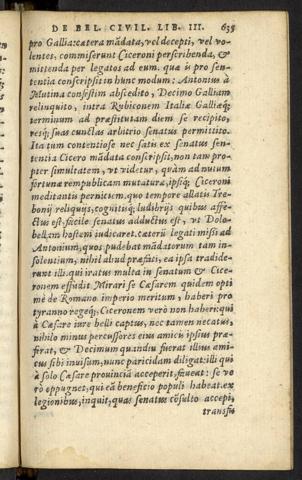 DE BEL. CIVIL. LIB. III. 639
pro Gallia: cætera mādata, vel decepti, vel vo-
lentes, commiserunt Ciceroni perscribenda, &
mittenda per legatos ad eum. qua ĩ pro sen-
tentia conscripsit in hunc modum: Antonius à
Mutina confestim abscedito, Decimo Galliam
relinquito, intra Rubiconem Italiæ Galliæq;
terminum ad præstitutam diem se recipito,
resq; suas cunctas arbitrio senatus permittito.
Ita tum contentiose nec satis ex senatus sen-
tentia Cicero mādata conscripsit, non tam pro-
pter simultatem, vt videtur, quàm ad nutum
fortunæ rempublicam mutaturæ, ipsíq; Ciceroni
meditantis pernitiem. quo tempore allatis Tre-
bonij reliquijs, cognitisq; ludibrijs quibus affe-
ctus est, facile senatus adductus est, vt Dolo-
bellam hostem iudicaret. cæterũ legati missi ad
Antonium, quos pudebat mādatorum tam in-
solentium, nihil aliud præfati, ea ipsa tradide-
runt illi. qui iratus multa in senatum & Cice-
ronem effudit. Mirari se Cæsarem quidem opti
mè de Romano imperio meritum, haberi pro
tyranno regeq;, Ciceronem verò non haberi: qui
à Cæsare iure belli captus, nec tamen necatus,
nihilo minus percussores eius amicis ipsius præ-
firat, & Decimum quandiu fuerat illius ami-
cus sibi inuisum, nunc paricidam diligat: illi qui
à solo Cæsare prouinciā acceperit, faueat: se ve
rò oppugnet, qui eā beneficio populi habeat. ex
legionibus, inquit, quas senatus cōsulto accepi,
transfu